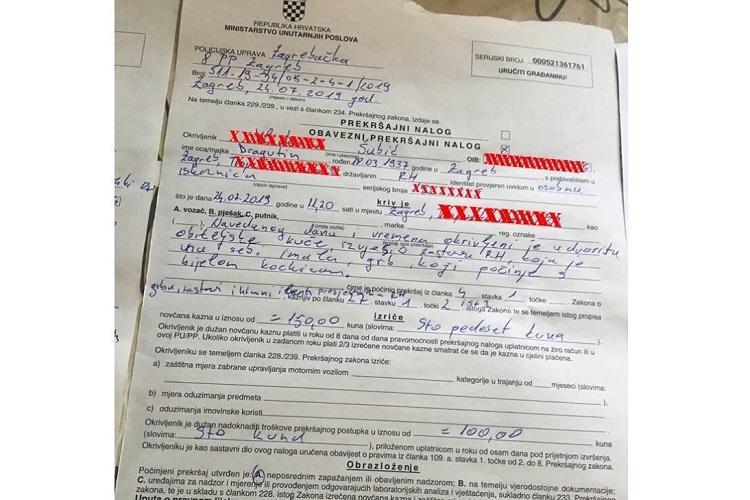 REPUBLIKA HRVATSKA
MINISTARSTVO UNUTARNJIH POSLOVA
POLICIJSKA UPRAVA Zagrebačka
8 PP Zagreb
Broj: 511-19-34/05-2-4-1/2019
Zagreb, 24.07.2019 god.
(mjesto i datum)
SERIJSKI BROJ 000521361761
URUČITI GRAĐANINU!
Na temelju članka 229./239., u vezi s člankom 234. Prekršajnog zakona, izdaje se
PREKRŠAJNI NALOG
OBAVEZNI PREKRŠAJNI NALOG
Okrivljenik Subić, OIB:
ime oca/majke Dragutin, rođen 19.03.1937. godine u Zagreb, s prebivalištem u
Zagreb, državljanin RH, identitet provjeren uvidom u osobnu
iskaznicu serijskog broja
(naziv isprave)
kriv je
što je dana 24.07.2019 godine u 11,20 sati u mjestu Zagreb, kao
A. vozač, B. pješak, C. putnik, , marke reg. oznake
(vrsta vozila)
Navedenog dana i vremena okrivljeni je u dvorištu
obiteljske kuće, izvjesio zastavu RH, koja je
na sebi imala grb koji počinje s
bijelom kockicom.
čime je počinio prekršaj iz članka 4, stavka 1, točke Zakona o
grbu, zastavi i himni RH
, kažnjiv po članku 27. stavku 1. točki 2 istoga Zakona te se temeljem istog propisa
izriče
novčana kazna u iznosu od =150,00 kuna (slovima: sto pedeset kuna).
Okrivljenik je dužan novčanu kaznu platiti u roku od 8 dana od dana pravomoćnosti prekršajnog naloga uplatnicom na žiro račun ili u
ovoj PU/PP. Ukoliko okrivljenik u zadanom roku plati 2/3 izrečene novčane kazne smatrat će se da je kazna u cjelini plaćena.
Okrivljeniku se temeljem članka 228./239. Prekršajnog zakona izriče:
a) zaštitna mjera zabrane upravljanja motornim vozilom kategorije u trajanju od mjeseci (slovima:
b) mjera oduzimanja predmeta
c) oduzimanja imovinske koristi
Okrivljenik je dužan nadoknaditi troškove prekršajnog postupka u iznosu od =100,00 kuna
(slovima: sto kuna), priloženom uplatnicom u roku od osam dana pod prijetnjom izvršenja.
Okrivljeniku je kao sastavni dio ovog naloga uručena obavijest o pravima iz članka 109. a stavka 1. točke od 2. do 8. Prekršajnog zakona.
Obrazloženje
Počinjeni prekršaj utvrđen je: A. neposrednim zapažanjem ili obavljenim nadzorom; B. na temelju vjerodostojne dokumentacije;
C. uređajima za nadzor i mjerenje ili provođenjem odgovarajućih laboratorijskih analiza i vještačenja, sukladno članku 233. Prekršajnog
zakona, te je u skladu s člankom 228. istog Zakona izrečena novčana kazna